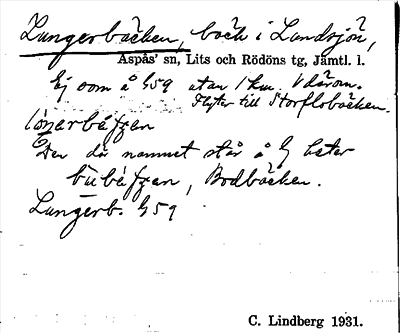 Lungerbäcken, bäck i Landsjön,
Aspås' sn, Lits och Rödöns tg, Jämtl. l.
Ej som å G59 utan 1 km. V därom.
Flyter till Storflobäcken.
Den där namnet står å G heter
Bodbäcken.
Lungerb. G59
C. Lindberg 1931.